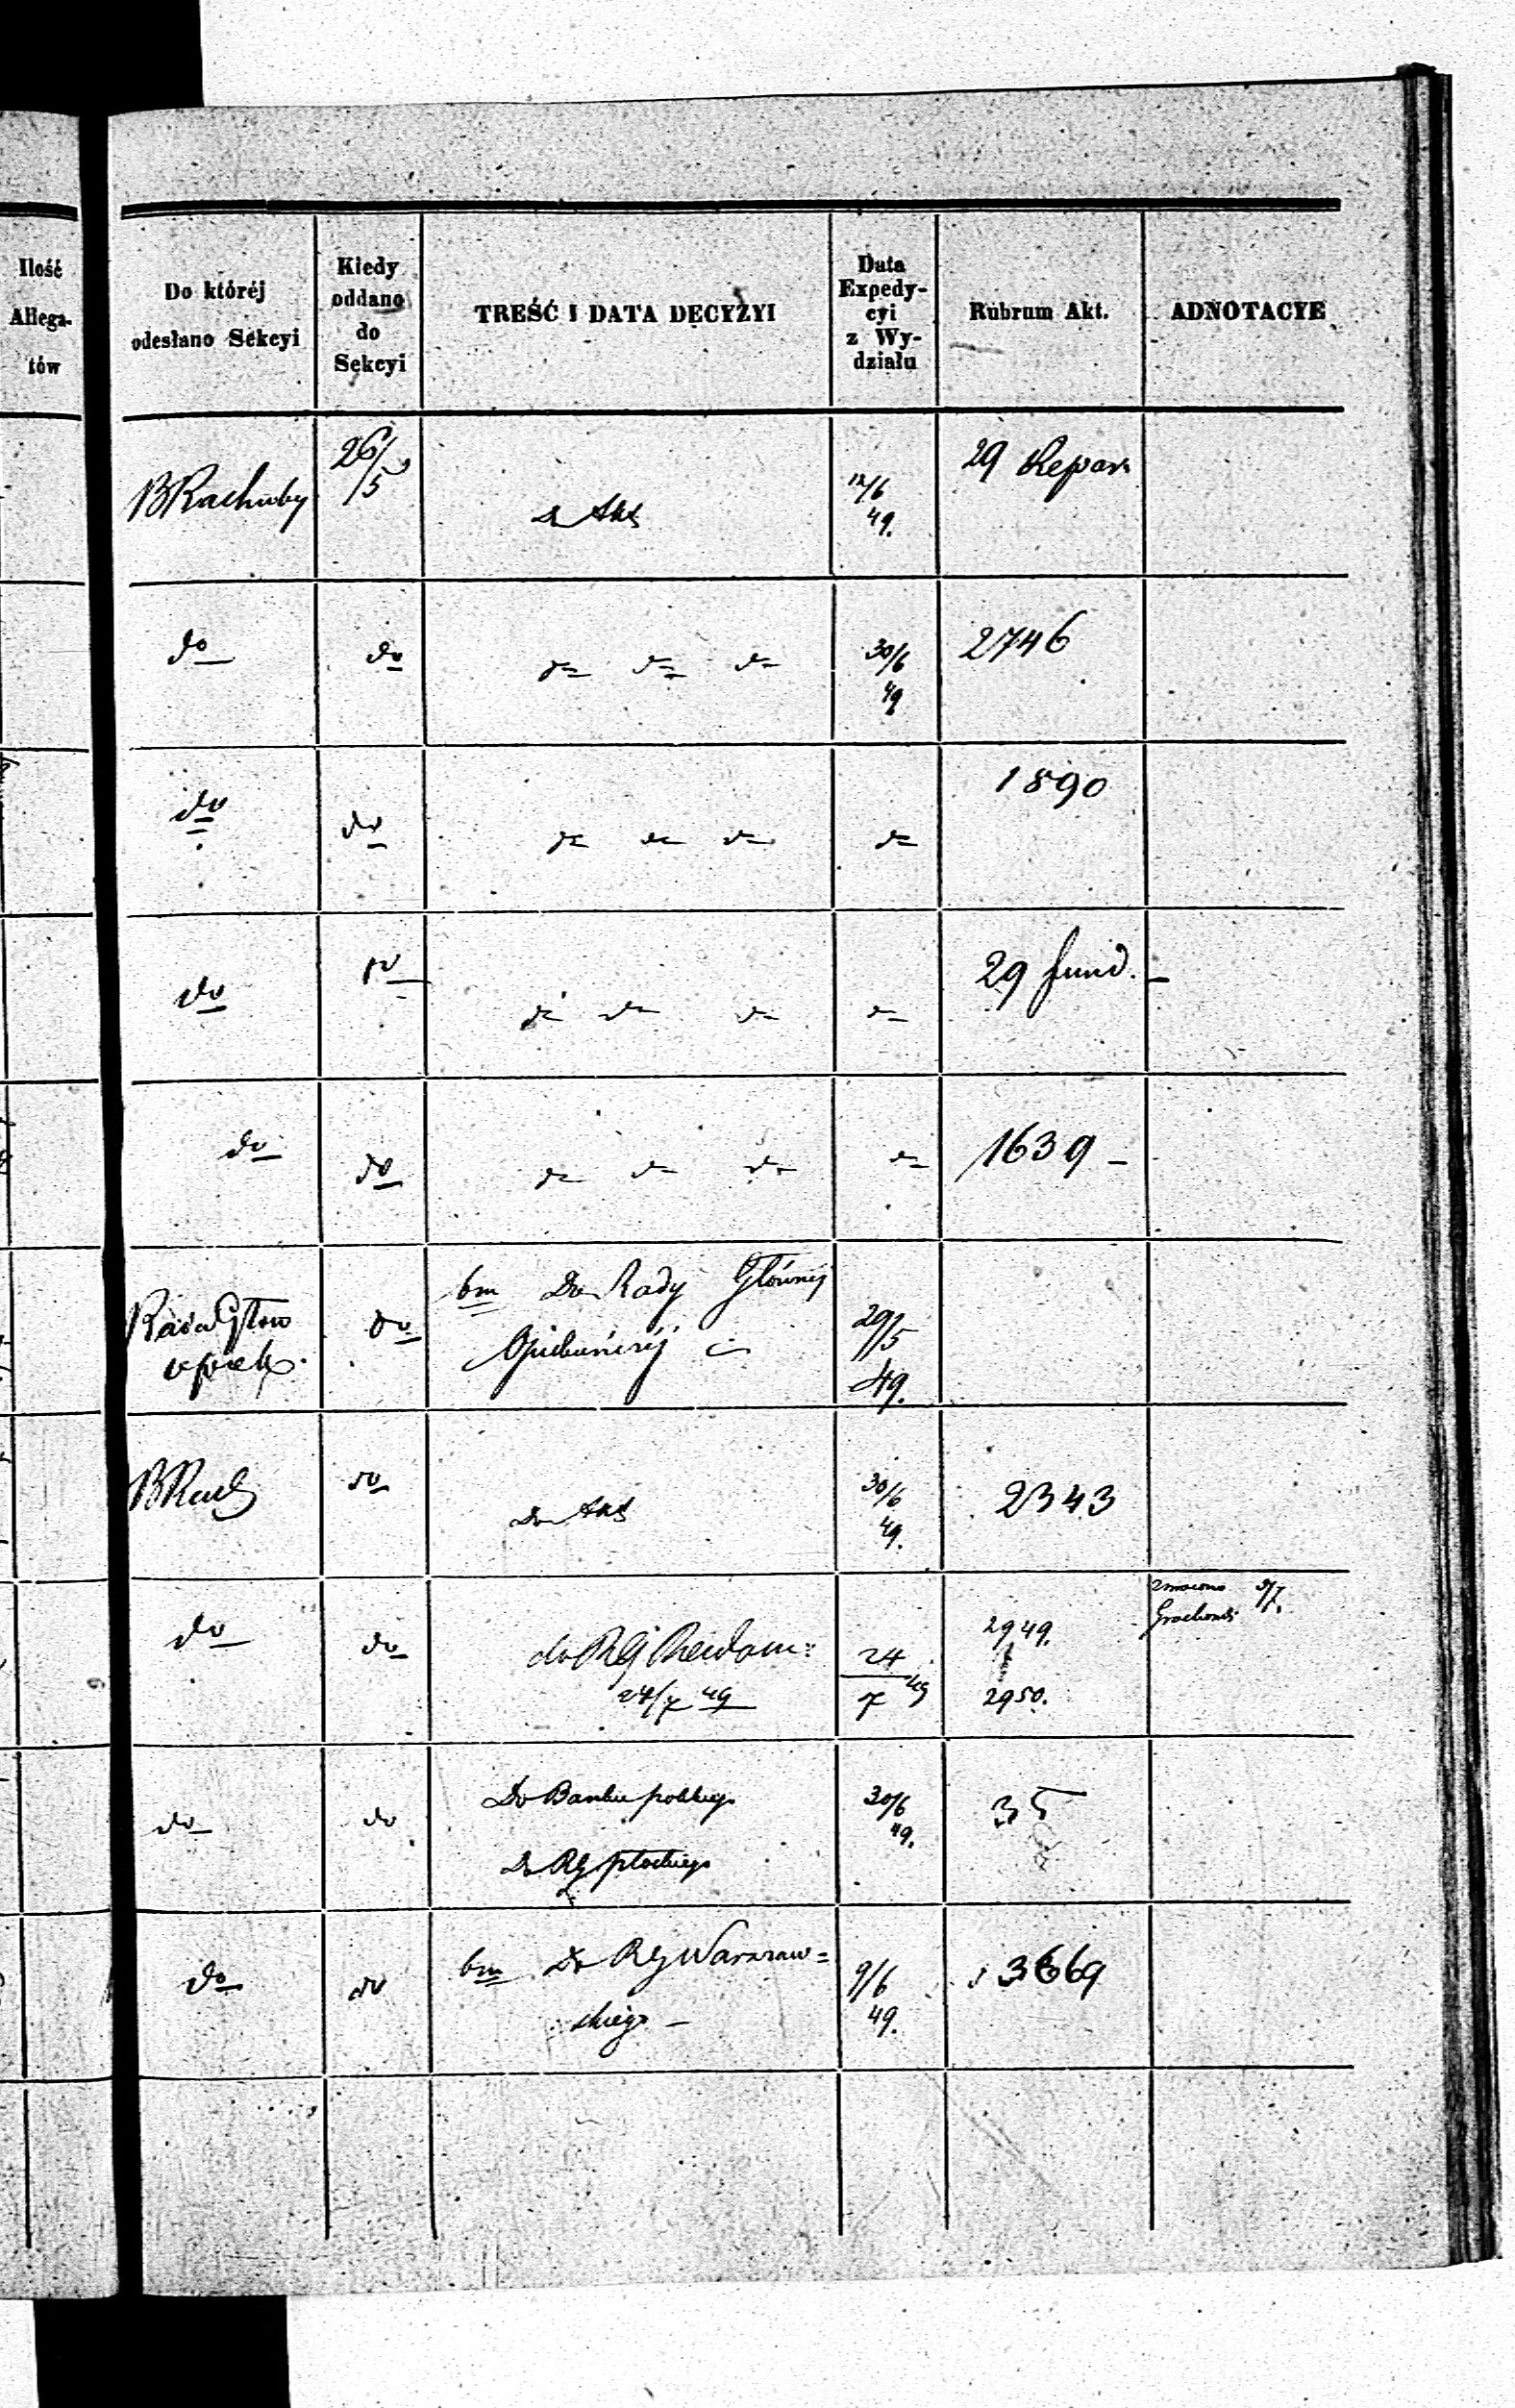 Ilość
Allega-
tów
Do któréj
odesłano Sekcyi
Kiedy
oddano
do
Sekcyi
TREŚĆ I DATA DECYZYI
Data
Expedy-
cyi
z Wy-
działu
Rubrum Akt.
ADNOTACYE
B Rachuby
26/5
do Akt
12/6
49.
29 Repar
do
do
do do do
30/6
49
2746
do
do
do do do
do
1890
do
do
do do do
do
29 fund. –
do
do
do do do
do
1639 –
Rada Głow
opiek.
do
bm Do Rady Głównéj
Opiekuńczéj
29/5
49.
B Rach
do
Do Akt
30/6
49.
2343
do
do
do RG Radom:
24/7 49
24/7 49
2949.
2950.
9/7.
do
do
Do Banku polskiego
Do RG płockiego
30/6
49.
35
do
do
bm Do RG Warszaw=
skiego –
9/6
49.
3669